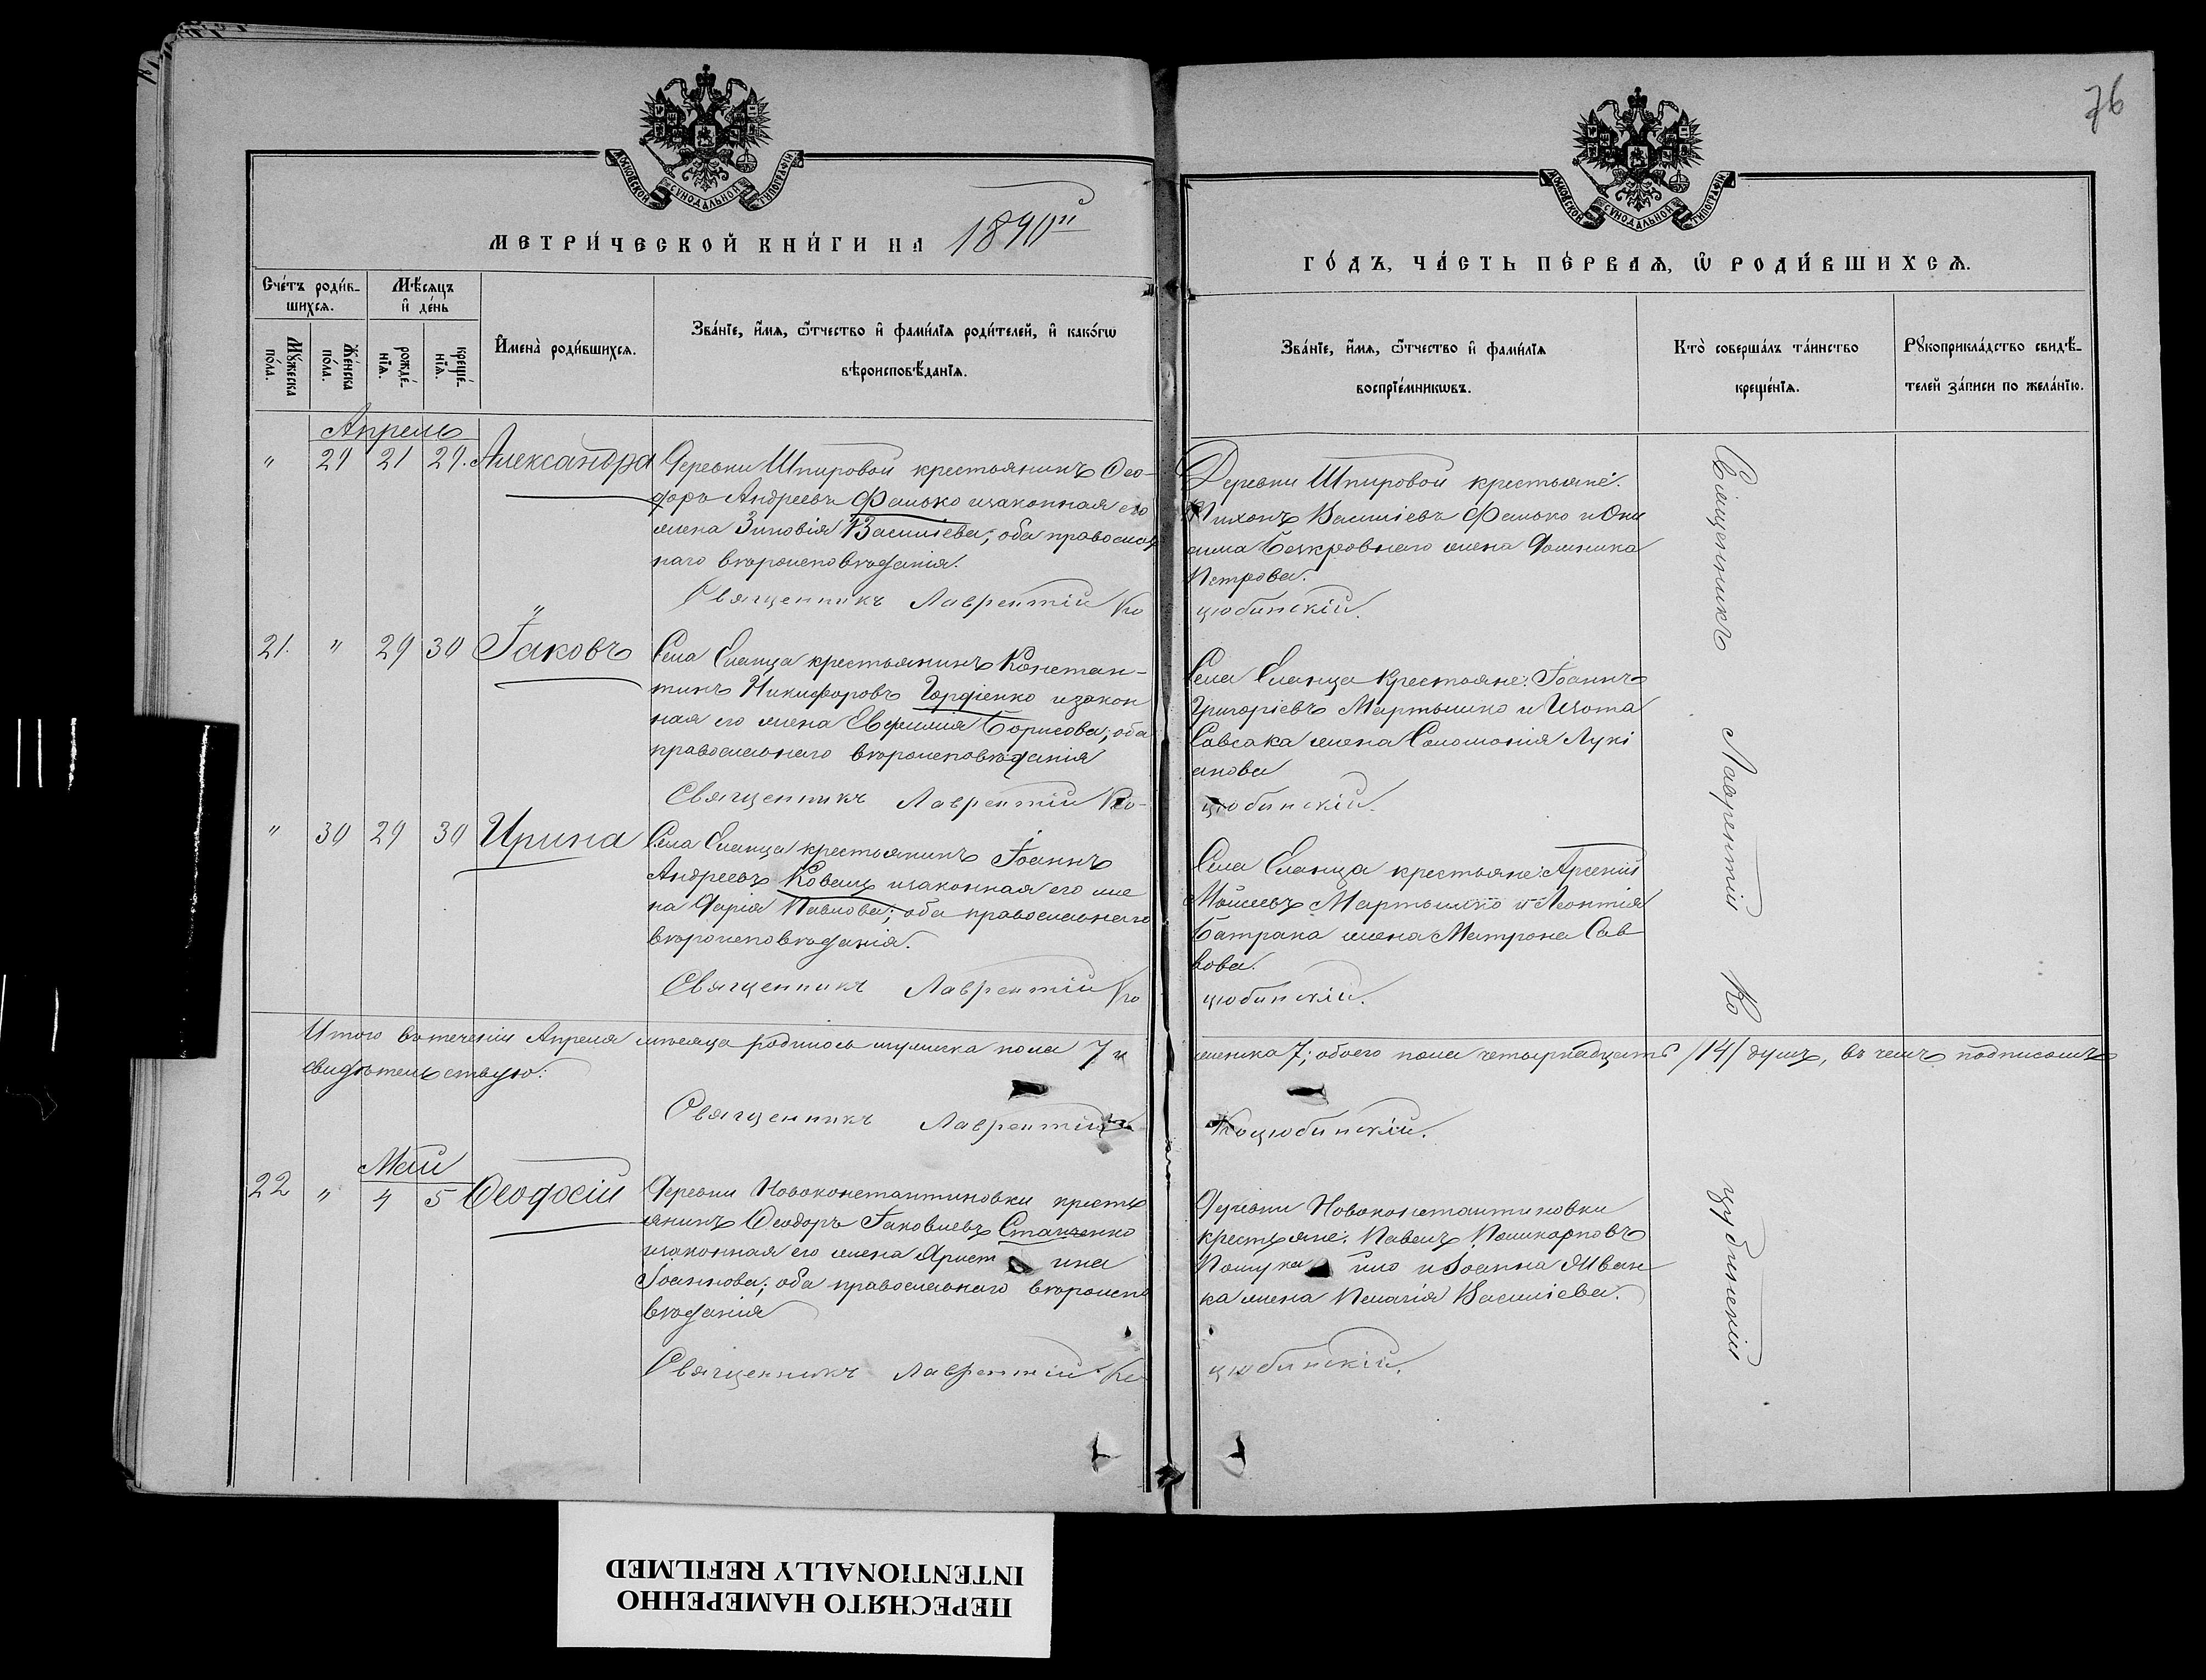 76
МОСКОВСКОЙ СѴНОДАЛЬНОЙ ТИПОГРАФІИ
МОСКОВСКОЙ СѴНОДАЛЬНОЙ ТИПОГРАФІИ
МЕТРИ́ЧЕСКОЙ КНИ́ГИ НА 1890й
ГО́ДЪ, ЧА́СТЬ ПЕ́РВАѦ, Ѡ РОДИ́ВШИХСѦ.
Сче́тъ роди́в-
шихсѧ.
Мꙋ́жеска
по́ла.
Же́нска
по́ла.
Мѣ́сѧцъ
и҆ де́нь
рожде́-
нїѧ.
креще́-
нїѧ.
И҆мена̀ роди́вшихсѧ.
Зва́нїе, и҆́мѧ, ѻ҆́тчество и҆ фами́лїѧ роди́телей, и҆ како́гѡ
вѣроисповѣ́данїѧ.
Зва́нїе, и҆́мѧ, ѻ҆́тчество и҆ фами́лїѧ
воспрїе́мникѡвъ.
Кто̀ соверша́лъ та́инство
креще́нїѧ.
Рꙋкоприкла́дство свидѣ́-
телей за́писи по жела́нїю.
Апрель
" 29 21 29. Александра
Деревни Шпировой крестьянинъ Ѳео-
доръ Андреевъ Фалько и законная его
жена Зиновія Василіева; оба православ
наго вѣроисповѣданія.
Священникъ Лаврентій Ко
Деревни Шпировой крестьяне:
Тихонъ Василіевъ Фалько и Они
сима Безкровнаго жена Домника
Петрова.
цюбинскій.
21. " 29 30 Іаковъ
Села Еланца крестьянинъ Констан-
тинъ Никифоровъ Гордіенко и закон
ная его жена Евфимія Борисова; оба
православнаго вѣроисповѣданія
Священникъ Лаврентій Ко-
Села Еланца крестьяне: Іоаннъ
Григоріевъ Мартышко и Изота
Савсака жена Соломонія Лукі
анова
цюбинскій.
" 30 29 30 Ирина
Села Еланца крестьянинъ Іоаннъ
Андреевъ Коваль и законная его же
на Дарія Павлова; оба православнаго
вѣроисповѣданія.
Священникъ Лаврентій Ко
Села Еланца крестьяне: Арсеній
Мойсеевъ Мартышко и Леонтія
Батрака жена Матрона Сав
вова.
цюбинскій.
Итого въ теченіи Апреля мѣсяца родилось мужеска пола 7 и женска 7; обоего пола четырнадцать /14/ душъ, въ чемъ подписомъ
свидѣтельствую:
Священникъ Лаврентій Коцюбинскій.
Май
22 " 4 5 Ѳеодосій
Деревни Новоконстантиновки кресть
янинъ Ѳеодоръ Іаковлевъ Стаценко
и законная его жена Христ ина
Іоаннова; оба православнаго вѣроиспо
вѣданія
Священникъ Лаврентій Ко
Деревни Новоконстантиновки
крестьяне: Павелъ Поликарповъ
и Іоанна Иван
ка жена Пелагія Василіева.
цюбинскій.
Священникъ Лаврентій Ко
цюбинскій
ПЕРЕСНЯТО НАМЕРЕННО
INTENTIONALLY REFILMED